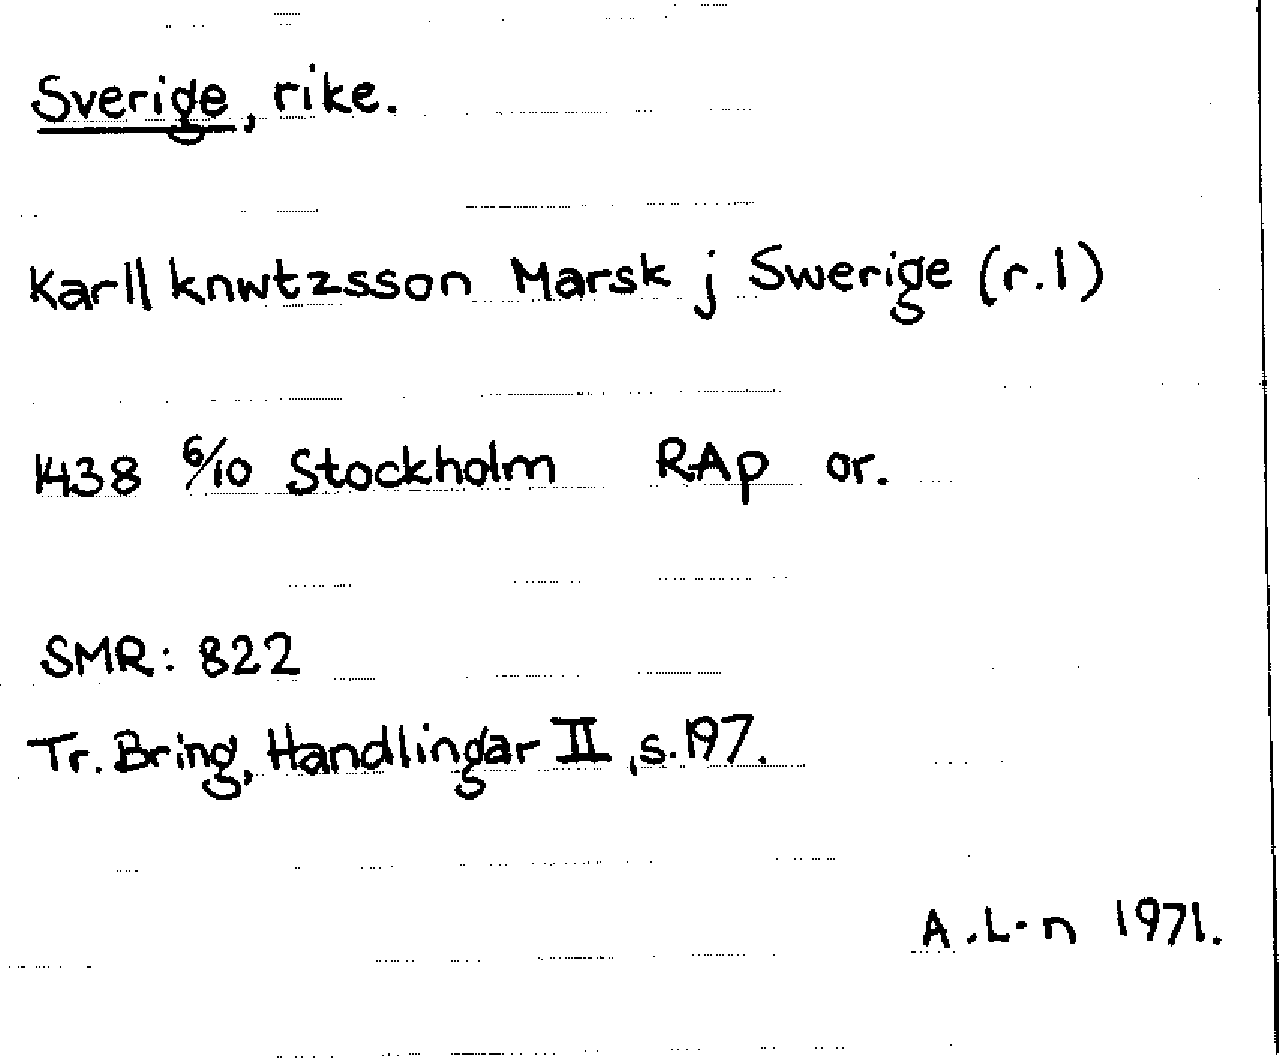 Sverige, rike.
Karll knwtzsson Marsk j Swerige (r.1)
1438 6/10 Stockholm RAp or.
SMR: 822
Tr. Bring, Handlingar II, s.197.
A.L-n 1971.